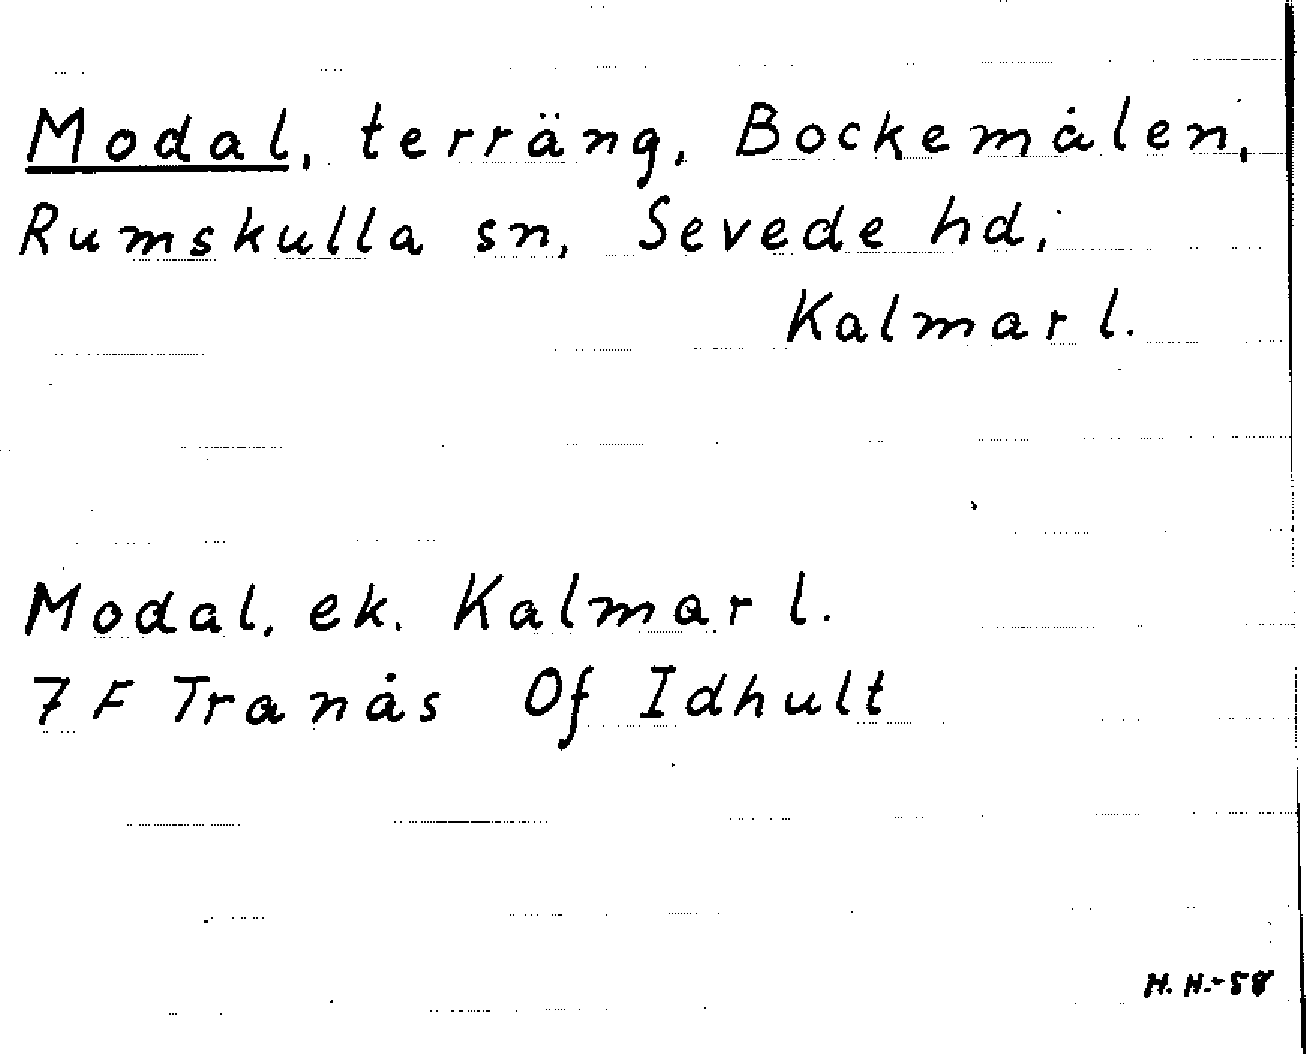 Modal, terräng, Bockemålen,
Rumskulla sn, Sevede hd,
Kalmar l.
Modal, ek. Kalmar l.
7 F Tranås Of Idhult
H. H.-58